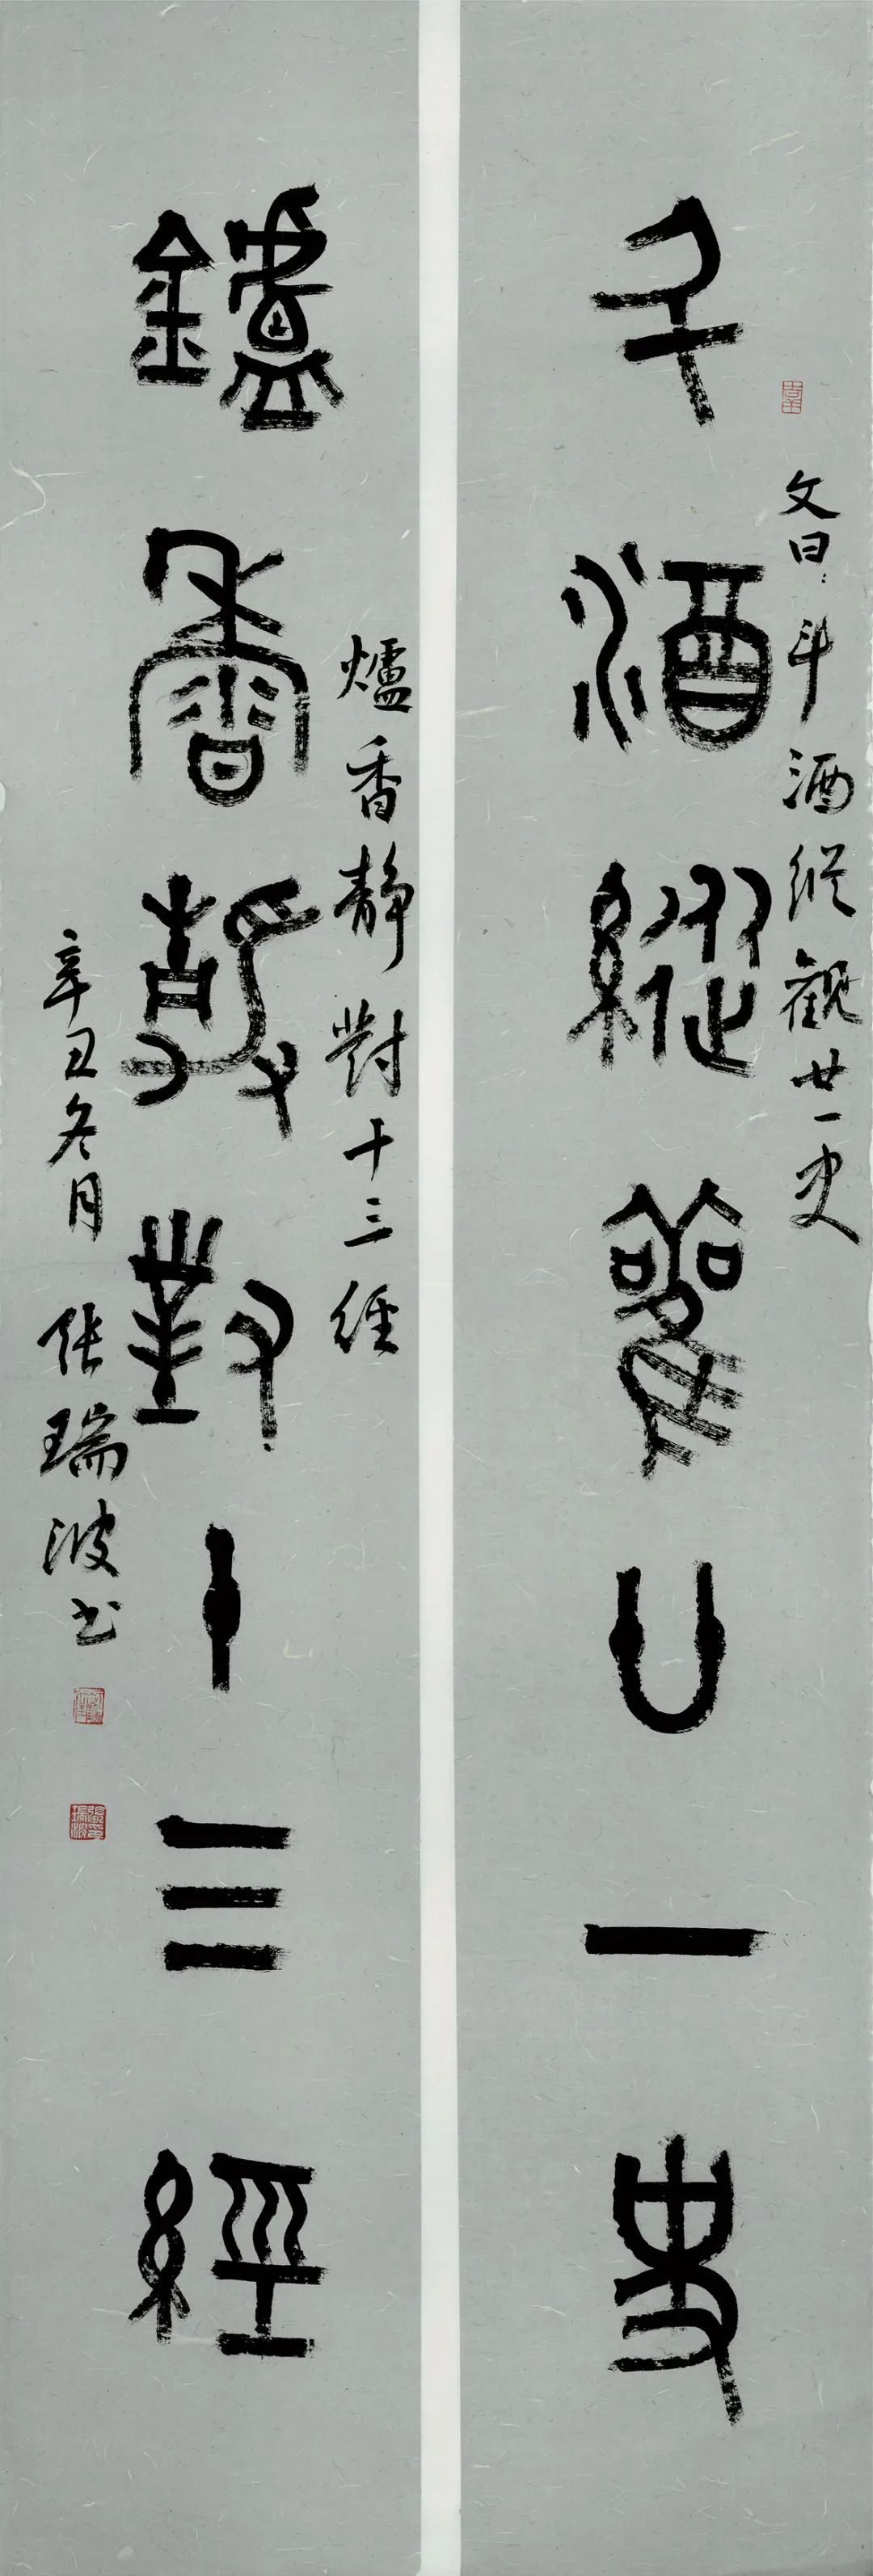 斗酒縱觀廿一史
文曰：斗酒縱觀廿一史
鑪香靜對十三經
爐香靜對十三經
辛丑冬月 張瑞波书